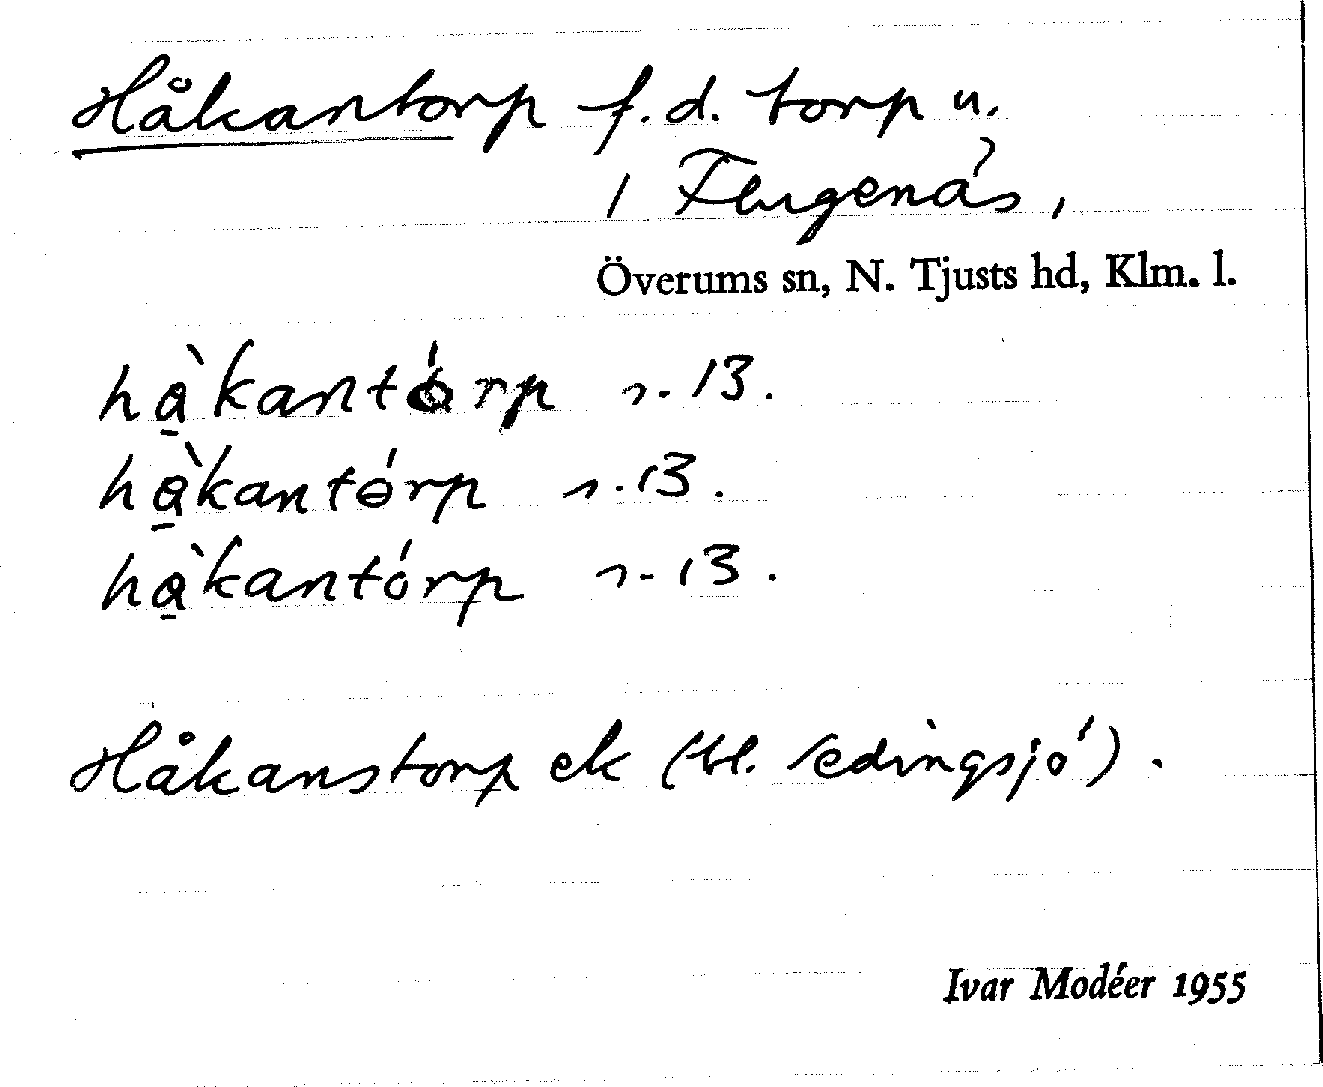 Håkantorp f.d. torp u.
1 Flugenäs,
Överums sn, N. Tjusts hd, Klm. l.
hà̱kantórp n. 13.
hà̱kantórp n. 13.
hà̱kantórp n. 13.
Håkanstorp ek (bl. Ledingsjö).
Ivar Modéer 1955